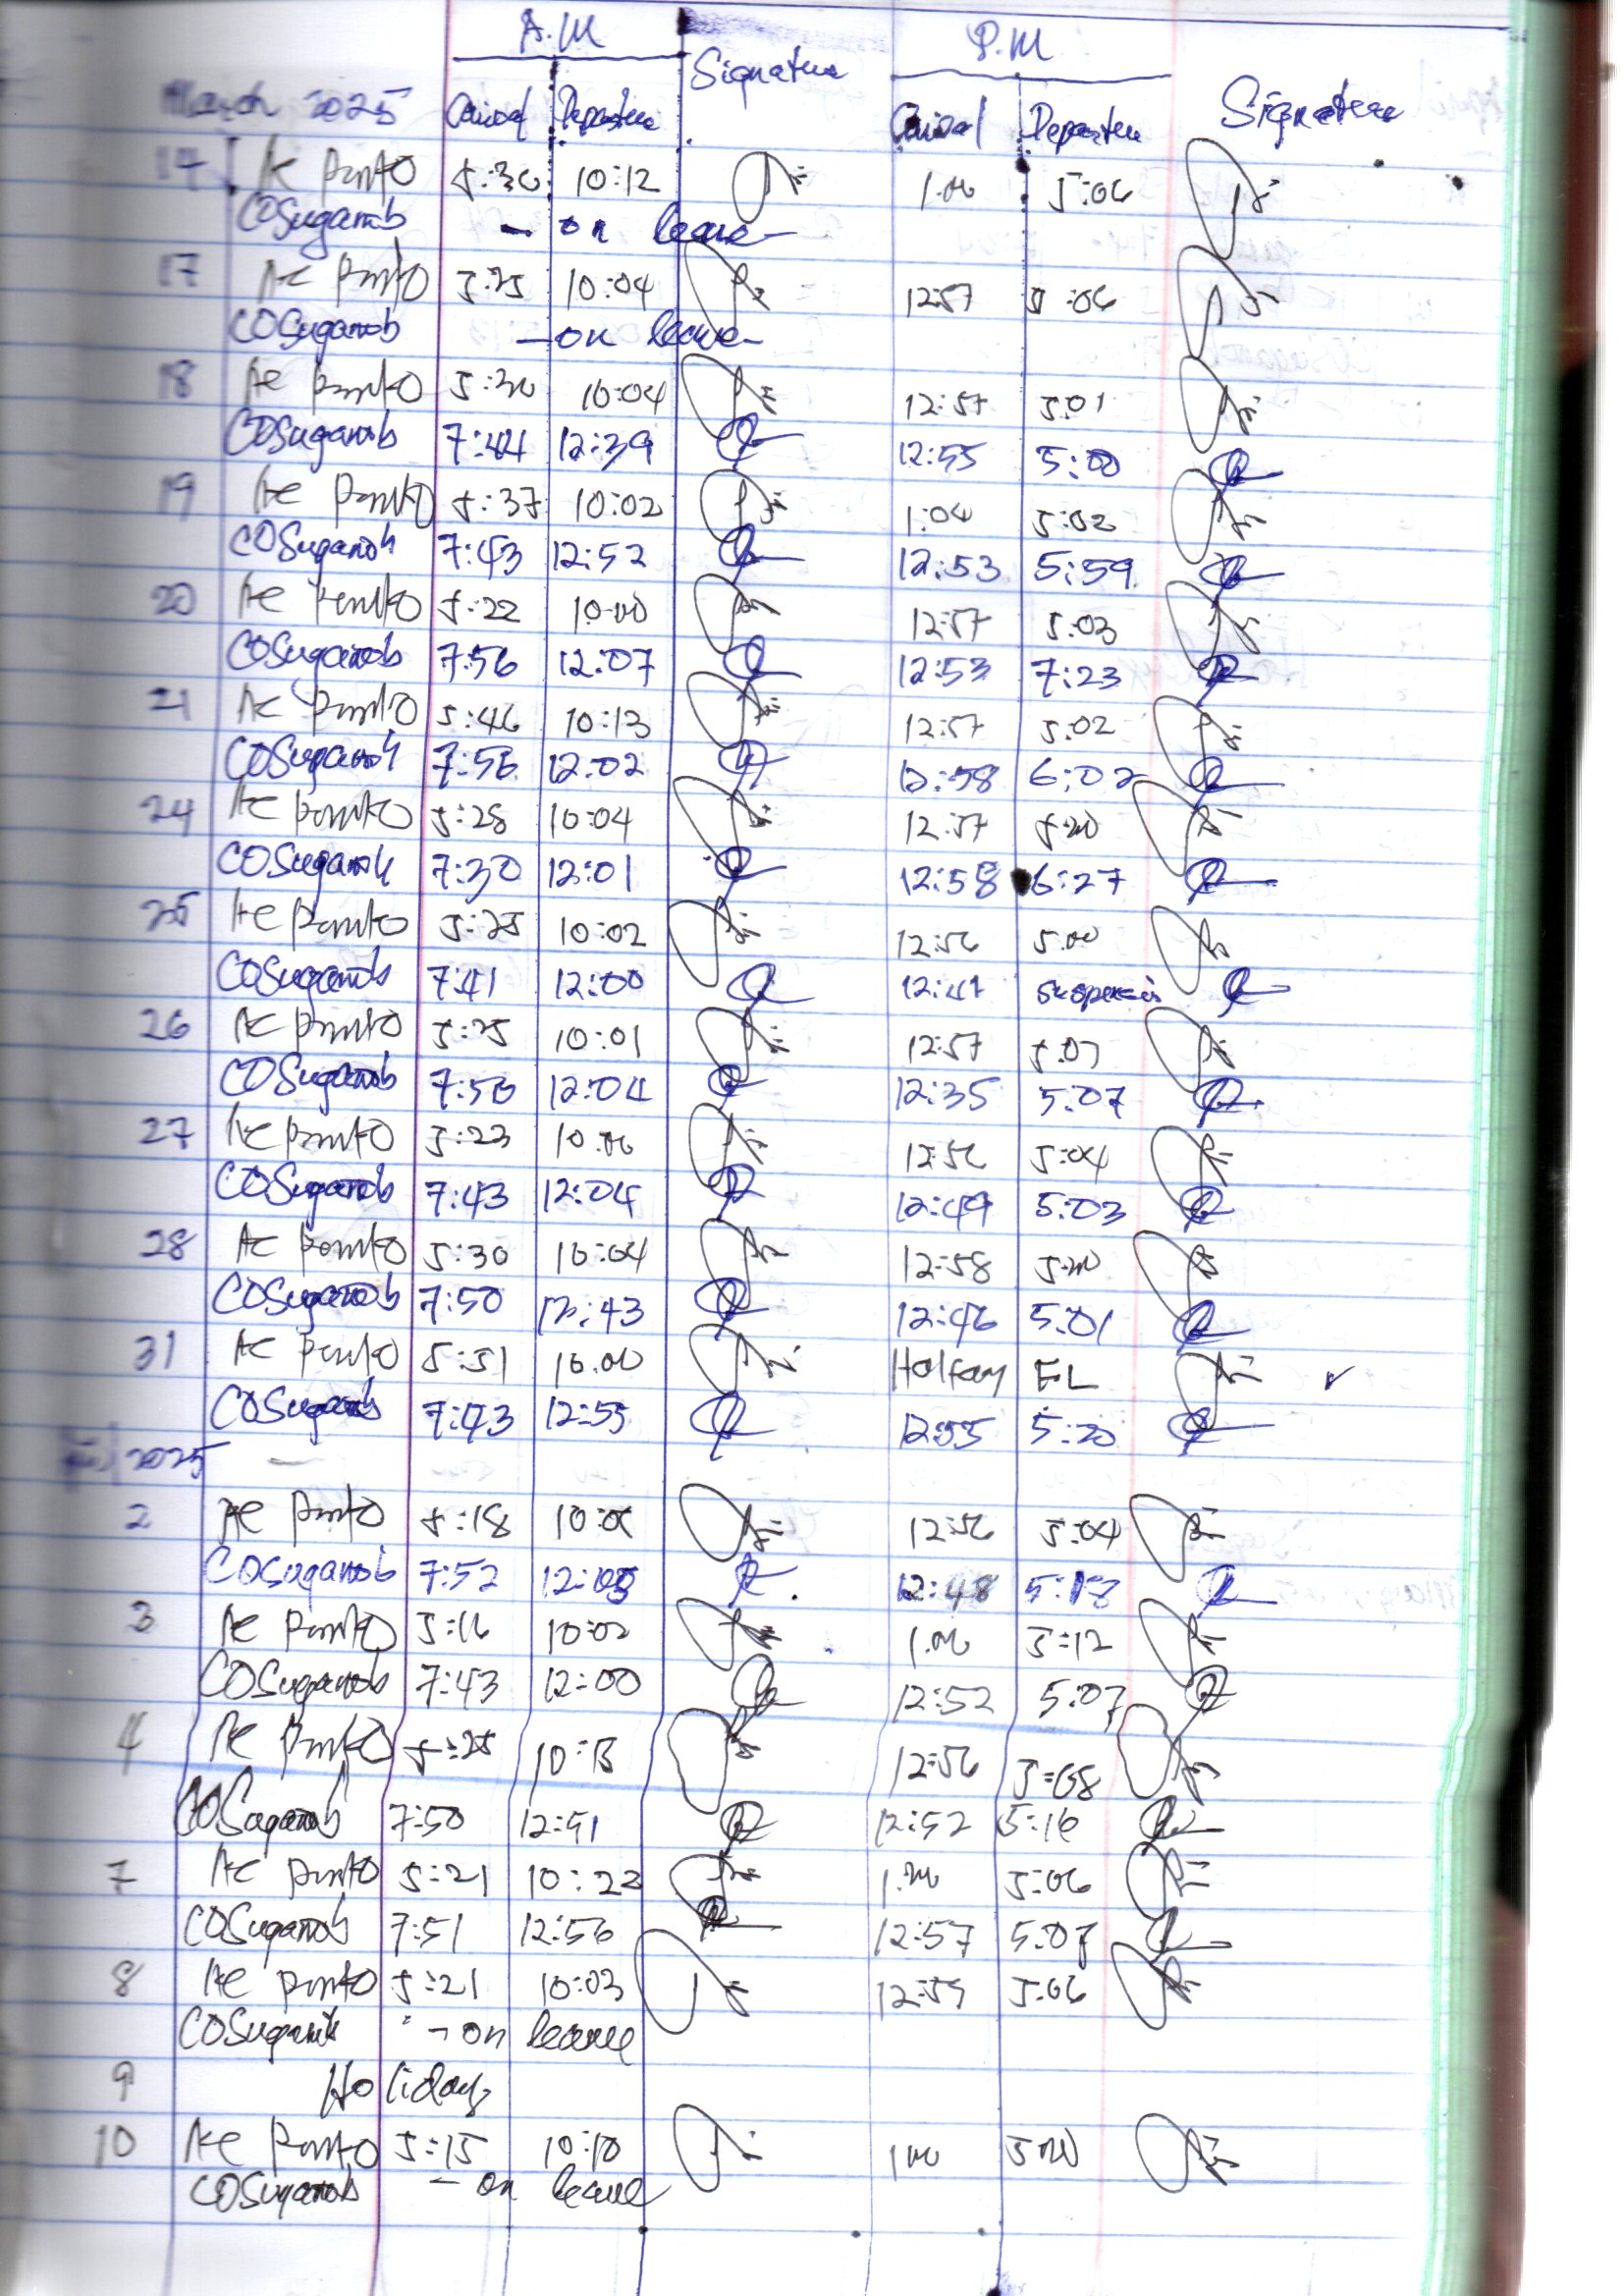 A.M P.M
March 2025 Arrival Departure Signature Arrival Departure Signature
14 AC Panto 5:30 10:12 1:00 5:06
COSuganob - on leave
17 AC Panto 5:25 10:04 12:57 5:06
COSuganob - on leave
18 AC Panto 5:20 10:04 12:57 5:01
COSuganob 7:44 12:39 12:55 5:00
19 AC Panto 5:37 10:02 1:04 5:02
COSuganob 7:43 12:52 12:53 5:59
20 AC Panto 5:22 10:00 12:57 5:03
COSuganob 7:56 12:07 12:53 7:23
21 AC Panto 5:46 10:13 12:57 5:02
COSuganob 7:56 12:02 12:58 6:02
24 AC Panto 5:28 10:04 12:57 5:00
COSuganob 7:30 12:01 12:58 6:27
25 AC Panto 5:25 10:02 12:56 5:00
COSuganob 7:41 12:00 12:47
26 AC Panto 5:25 10:01 12:57
COSuganob 7:56 12:04 12:35 5:07
27 AC Panto 5:23 10:00 12:56 5:04
COSuganob 7:43 12:04 12:49 5:03
28 AC Panto 5:30 10:04 12:58 5:00
COSuganob 7:50 12:43 12:46 5:01
31 AC Panto 5:51 10:00 Halfday FL
COSuganob 7:43 12:55 12:55 5:20
2025
2 AC Panto 5:18 10:00 12:56 5:04
COSuganob 7:52 12:48 5:13
3 AC Panto 5:16 10:02 1:00 5:12
COSuganob 7:43 12:00 12:52 5:07
4 AC Panto 5:25 10:13 12:56 5:08
COSuganob 7:50 12:51 12:52 5:16
7 AC Panto 5:21 10:23 1:00 5:06
COSuganob 7:51 12:56 12:57 5:07
8 AC Panto 5:21 10:03 12:59 5:06
COSuganob - on leave
9 Holiday
10 AC Panto 5:15 10:10 1:00 5:00
COSuganob - on leave